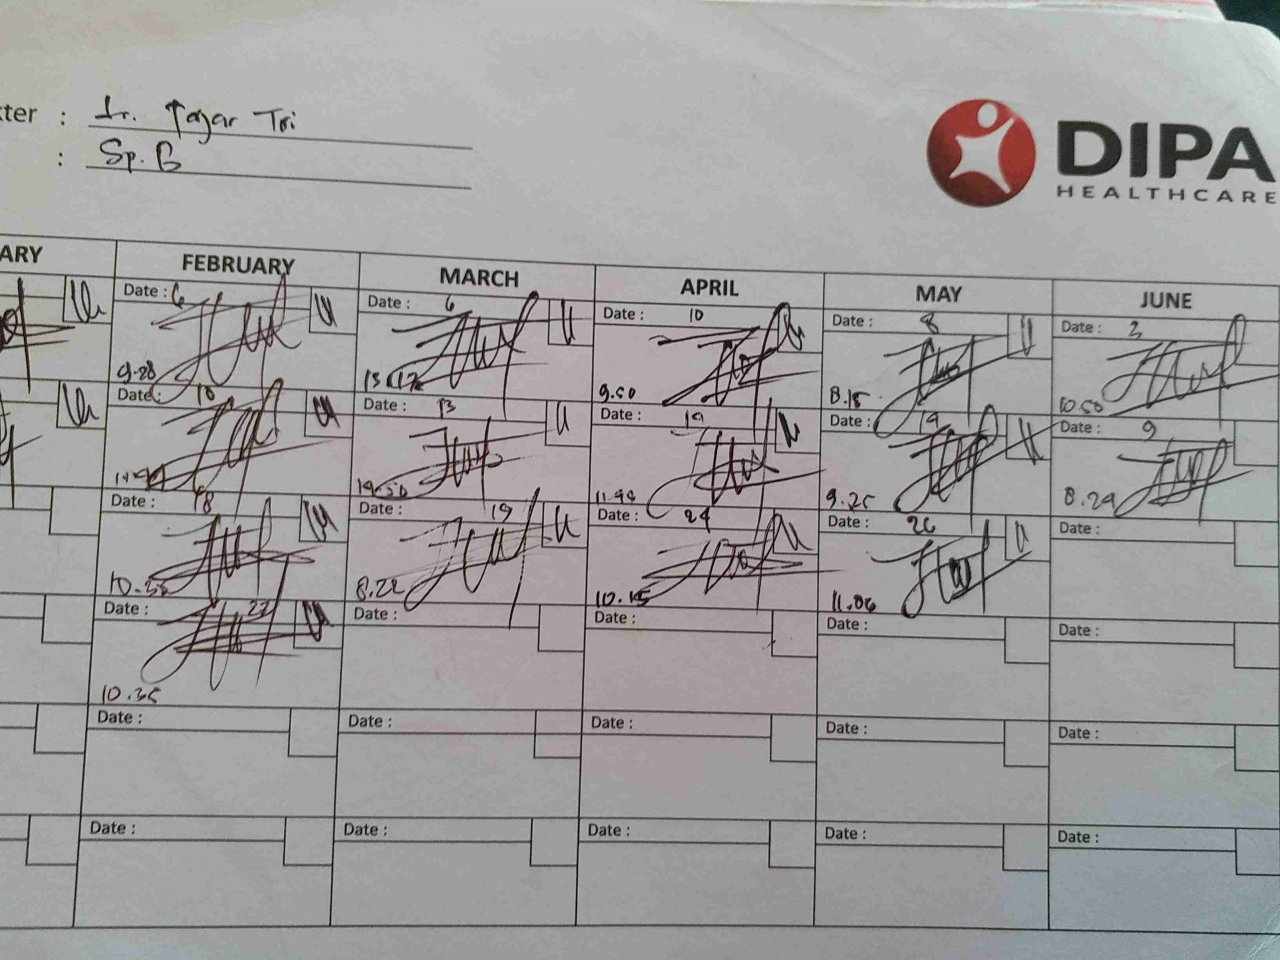 cter : dr. Fajar Tri
: Sp. B
DIPA
HEALTHCARE
ARY FEBRUARY MARCH APRIL MAY JUNE
Date : 6 Date : 6 Date : 10 Date : 8 Date : 3
9.50 8.15 10.50
Date : 10 Date : 13 Date : 19 Date : 19 Date : 9
9.25 8.29
Date : 18 Date : 19 Date : 24 Date : 26
8.22 10.15 11.06
Date : 22 Date : Date : Date : Date :
10.35
Date : Date : Date : Date : Date :
Date : Date : Date : Date : Date :